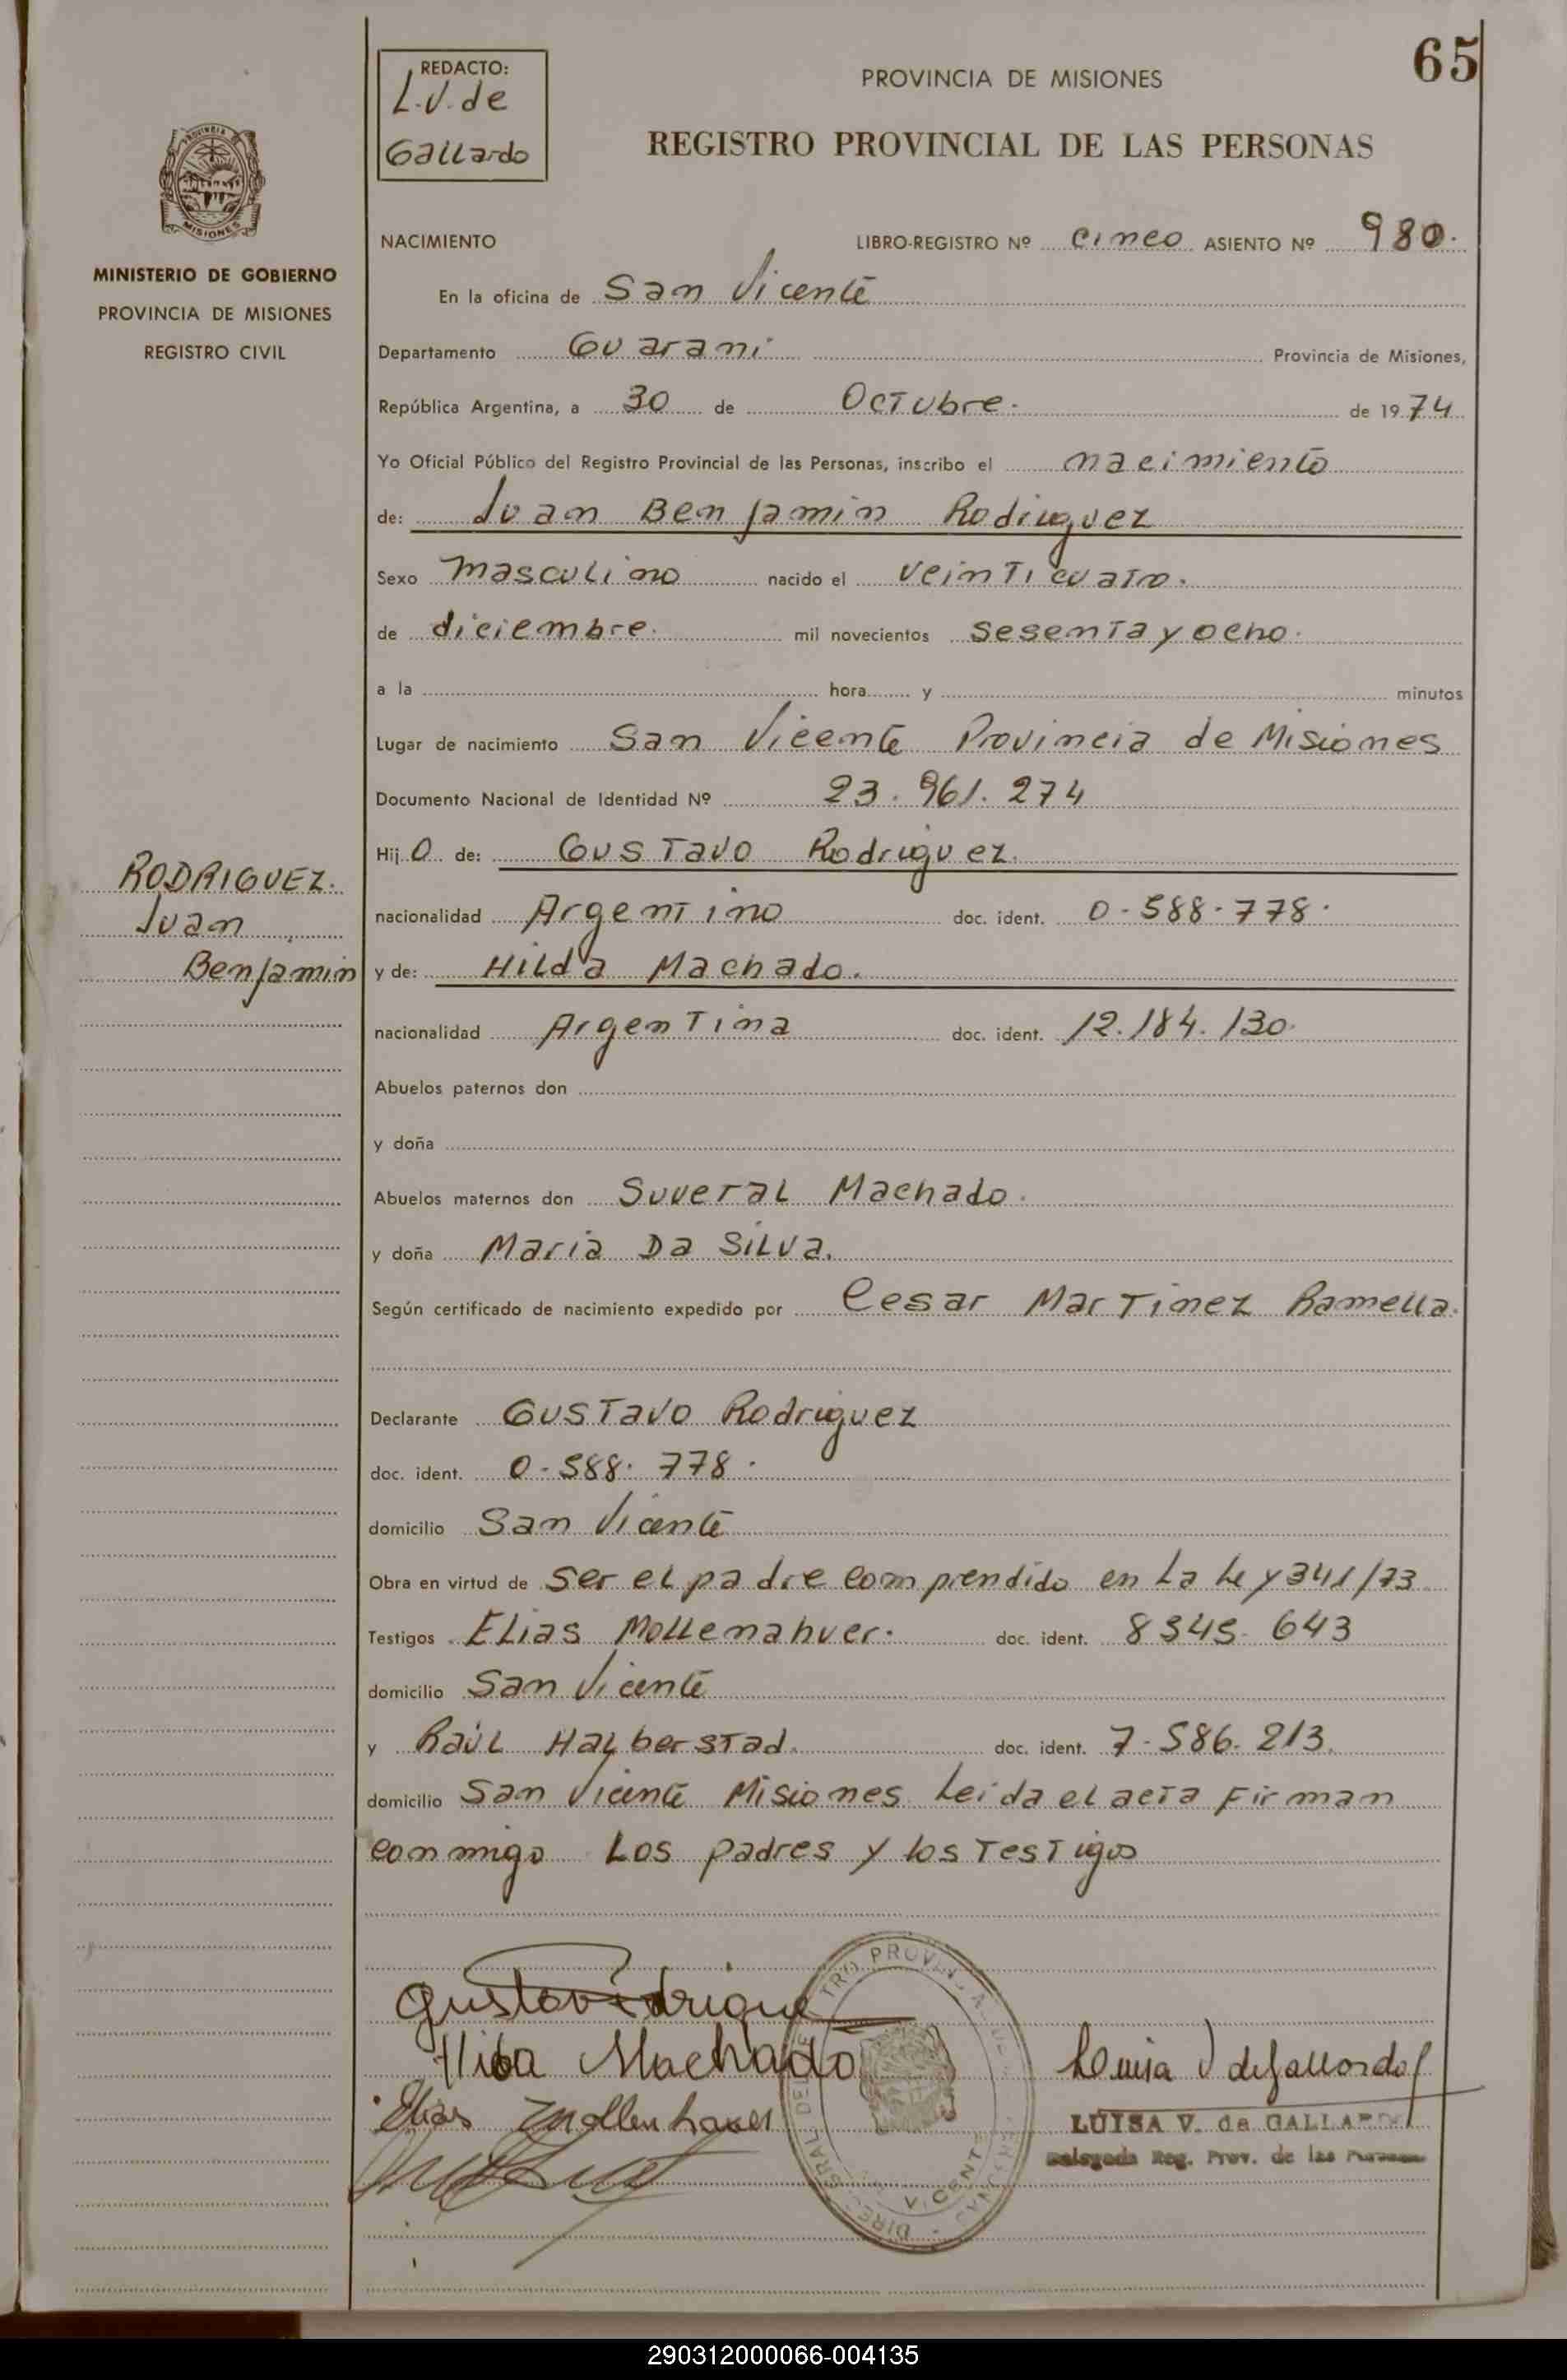 65
REDACTO:
L.V. de
Gallardo
PROVINCIA DE MISIONES
REGISTRO PROVINCIAL DE LAS PERSONAS
PROVINCIA
MISIONES
MINISTERIO DE GOBIERNO
PROVINCIA DE MISIONES
REGISTRO CIVIL
NACIMIENTO LIBRO-REGISTRO Nº cinco ASIENTO Nº 980.
En la oficina de San Vicente
Departamento Guarani Provincia de Misiones,
República Argentina, a 30 de Octubre. de 1974
Yo Oficial Público del Registro Provincial de las Personas, inscribo el nacimiento
de: Juan Benjamin Rodriguez
Sexo masculino nacido el veinticuatro.
de diciembre. mil novecientos sesenta y ocho.
a la hora y minutos
Lugar de nacimiento San Vicente Provincia de Misiones
Documento Nacional de Identidad Nº 23.961.274
Hij o de: Gustavo Rodriguez.
nacionalidad Argentino doc. ident. 0-588-778.
RODRIGUEZ.
Juan
Benjamin
y de: Hilda Machado.
nacionalidad Argentina doc. ident. 12.184.130.
Abuelos paternos don
y doña
Abuelos maternos don Suveral Machado.
y doña Maria Da Silva.
Según certificado de nacimiento expedido por Cesar Martinez Ramella.
Declarante Gustavo Rodriguez
doc. ident. 0-588.778.
domicilio San Vicente
Obra en virtud de ser el padre comprendido en la Ley 341/73
Testigos Elias Mollenahuer. doc. ident. 8345.643
domicilio San Vicente
y Raúl Halberstad. doc. ident. 7.586.213.
domicilio San Vicente Misiones Leida el acta Firman
conmigo Los padres y los Testigos
Hilda Machado
Elias Mollenhauer
Luisa V de Gallardo
LUISA V. de GALLARDO
Delegada Reg. Prov. de las Personas
290312000066-004135